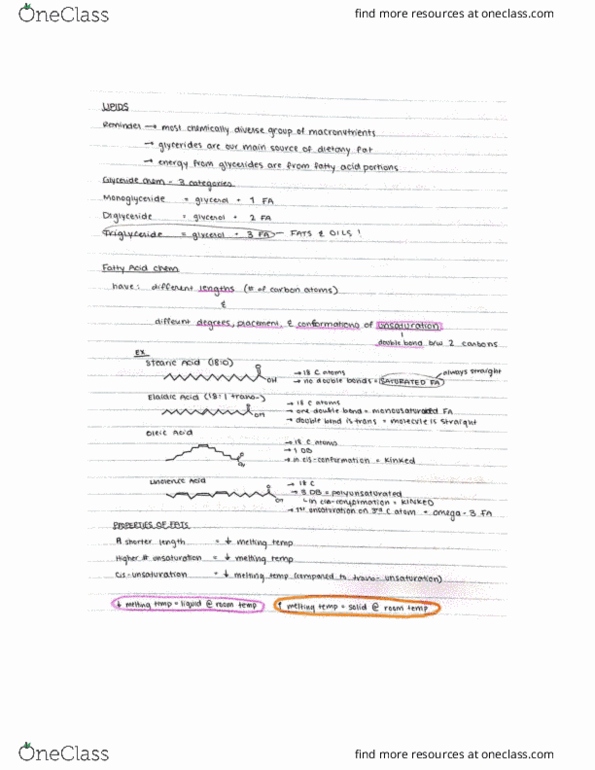 OneClass
find more resources at oneclass.com
LIPIDS
Reminder → most chemically diverse group of macronutrients
→ glycerides are our main source of dietary fat
→ energy from glycerides are from fatty acid portions
Glyceride chem = 3 categories
Monoglyceride = glycerol + 1 FA
Diglyceride = glycerol + 2 FA
Triglyceride = glycerol + 3 FA — FATS & OILS !
Fatty Acid chem
have: different lengths (# of carbon atoms)
&
different degrees, placement, & conformations of unsaturation
double bond btw 2 carbons
EX
Stearic Acid (18:0)
OH
→ 18 C atoms
→ no double bonds = SATURATED FA
always straight
Elaidic Acid (18:1 trans-)
OH
→ 18 C atoms
→ one double bond = monounsaturated FA
→ double bond is trans = molecule is straight
Oleic Acid
→ 18 C atoms
→ 1 DB
→ in cis-conformation = kinked
Linolence Acid
OH
→ 18 C
→ 3 DB = polyunsaturated
in cis-conformation = KINKED
→ 1st unsaturation on 3rd C atom = omega-3 FA
PROPERTIES OF FATS
shorter length = ↓ melting temp
Higher # unsaturation = ↓ melting temp
Cis-unsaturation = ↓ melting temp (compared to trans- unsaturation)
↓ melting temp = liquid @ room temp
↑ melting temp = solid @ room temp
OneClass
find more resources at oneclass.com